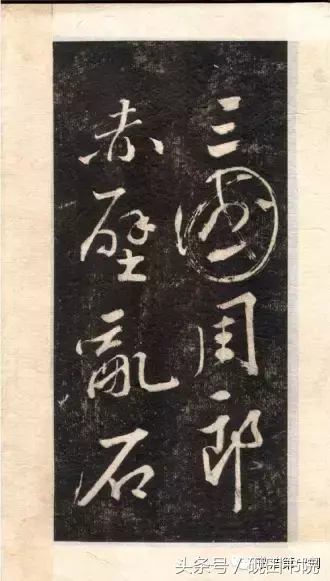 三國周郎
赤壁亂石
头条号/砚田书院